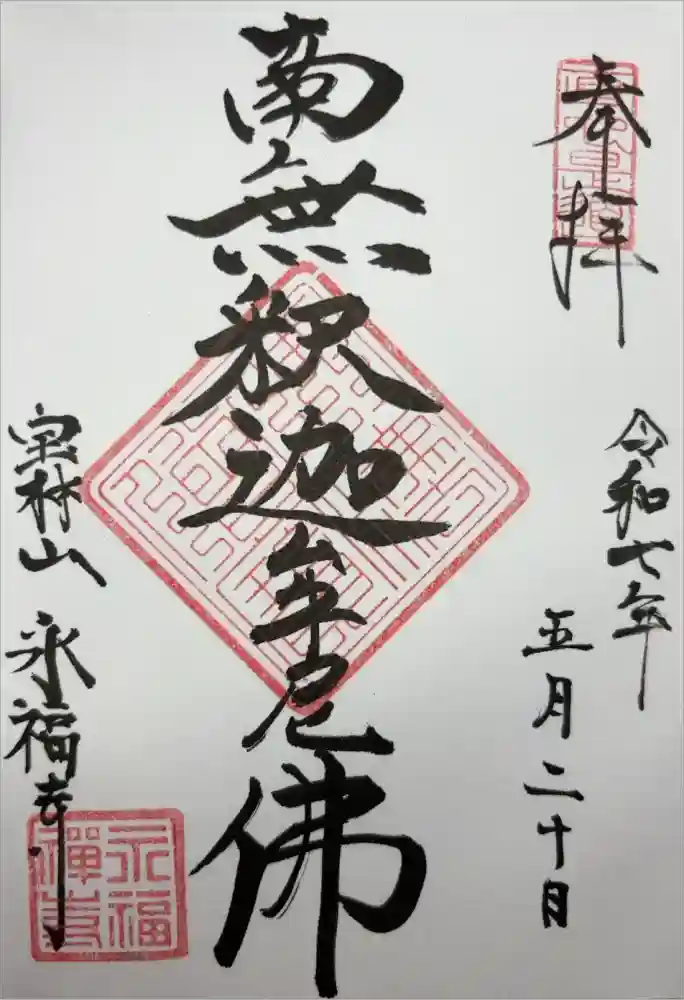 奉拝
令和七年
五月二十日
南無釈迦牟尼佛
宝林山 永福寺
永福
禅寺